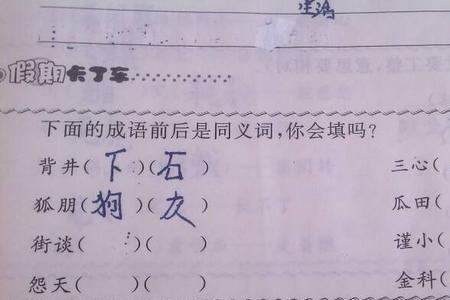 生活
假期卡丁车
下面的成语前后是同义词,你会填吗?
背井(下)(石) 三心(
狐朋(狗)(友) 瓜田(
街谈( )( ) 谨小(
怨天( )( ) 金科(